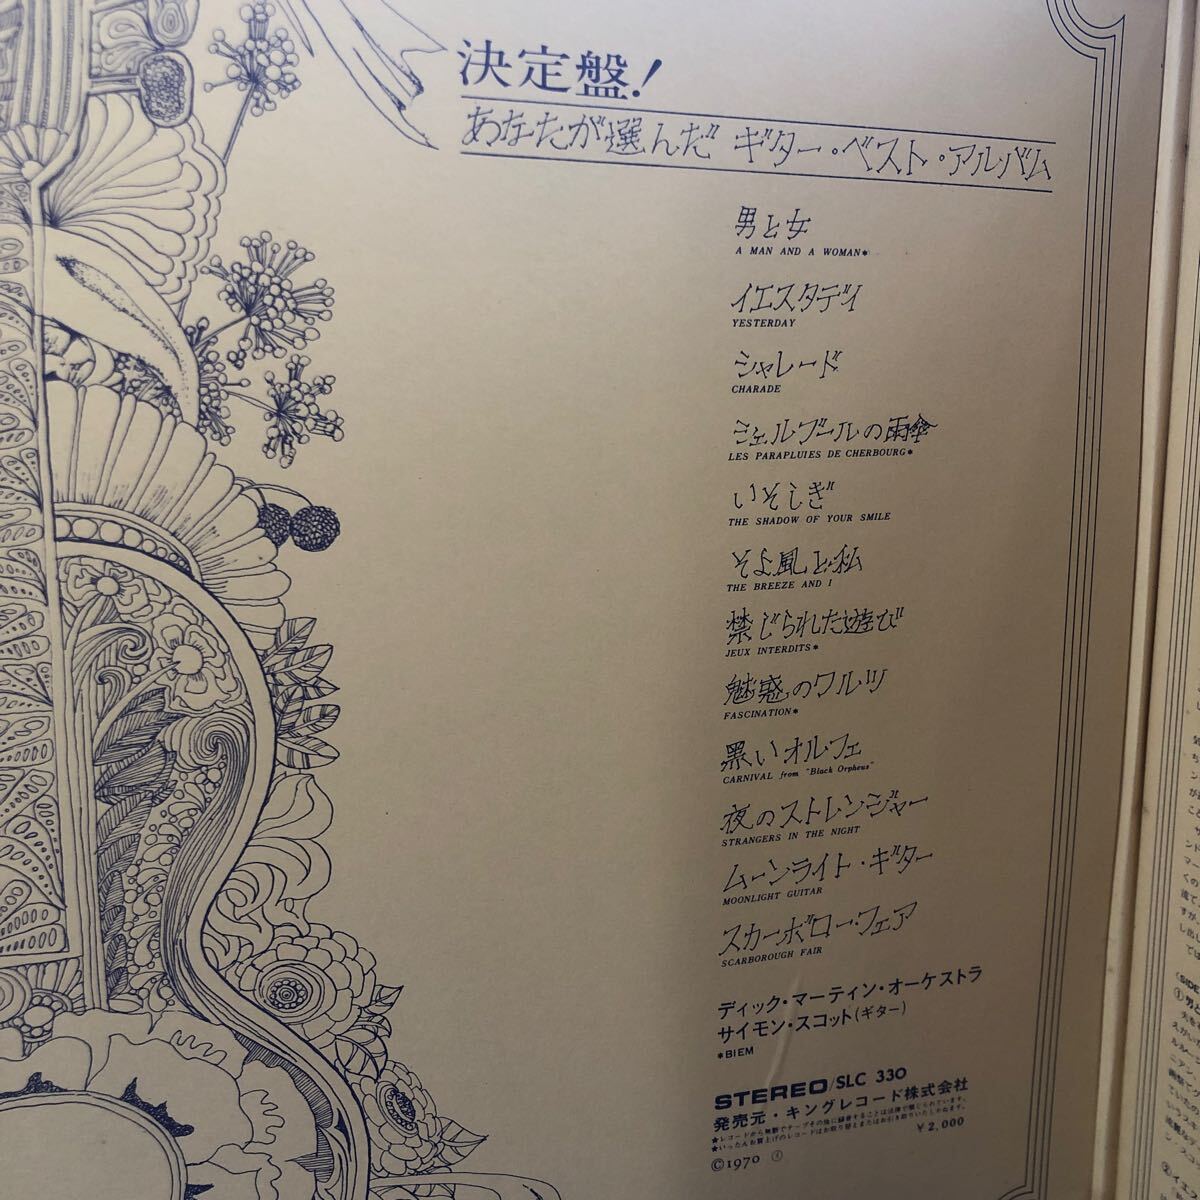 決定盤!
あなたが選んだ ギター・ベスト・アルバム
男と女
A MAN AND A WOMAN*
イエスタデイ
YESTERDAY
シャレード
CHARADE
シェルブールの雨傘
LES PARAPLUIES DE CHERBOURG*
いそしぎ
THE SHADOW OF YOUR SMILE
そよ風と私
THE BREEZE AND I
禁じられた遊び
JEUX INTERDITS*
魅惑のワルツ
FASCINATION*
黒いオルフェ
CARNIVAL from "Black Orpheus"
夜のストレンジャー
STRANGERS IN THE NIGHT
ムーンライト・ギター
MOONLIGHT GUITAR
スカーボロー・フェア
SCARBOROUGH FAIR
ディック・マーティン・オーケストラ
サイモン・スコット(ギター)
*BIEM
STEREO/SLC 330
発売元・キングレコード株式会社
★レコードから無断でテープその他に録音することは法律で禁じられています。
★いったんお買上げのレコードはお取り替えまたはお引き取りいたしかねます。
¥2,000
©1970 ④